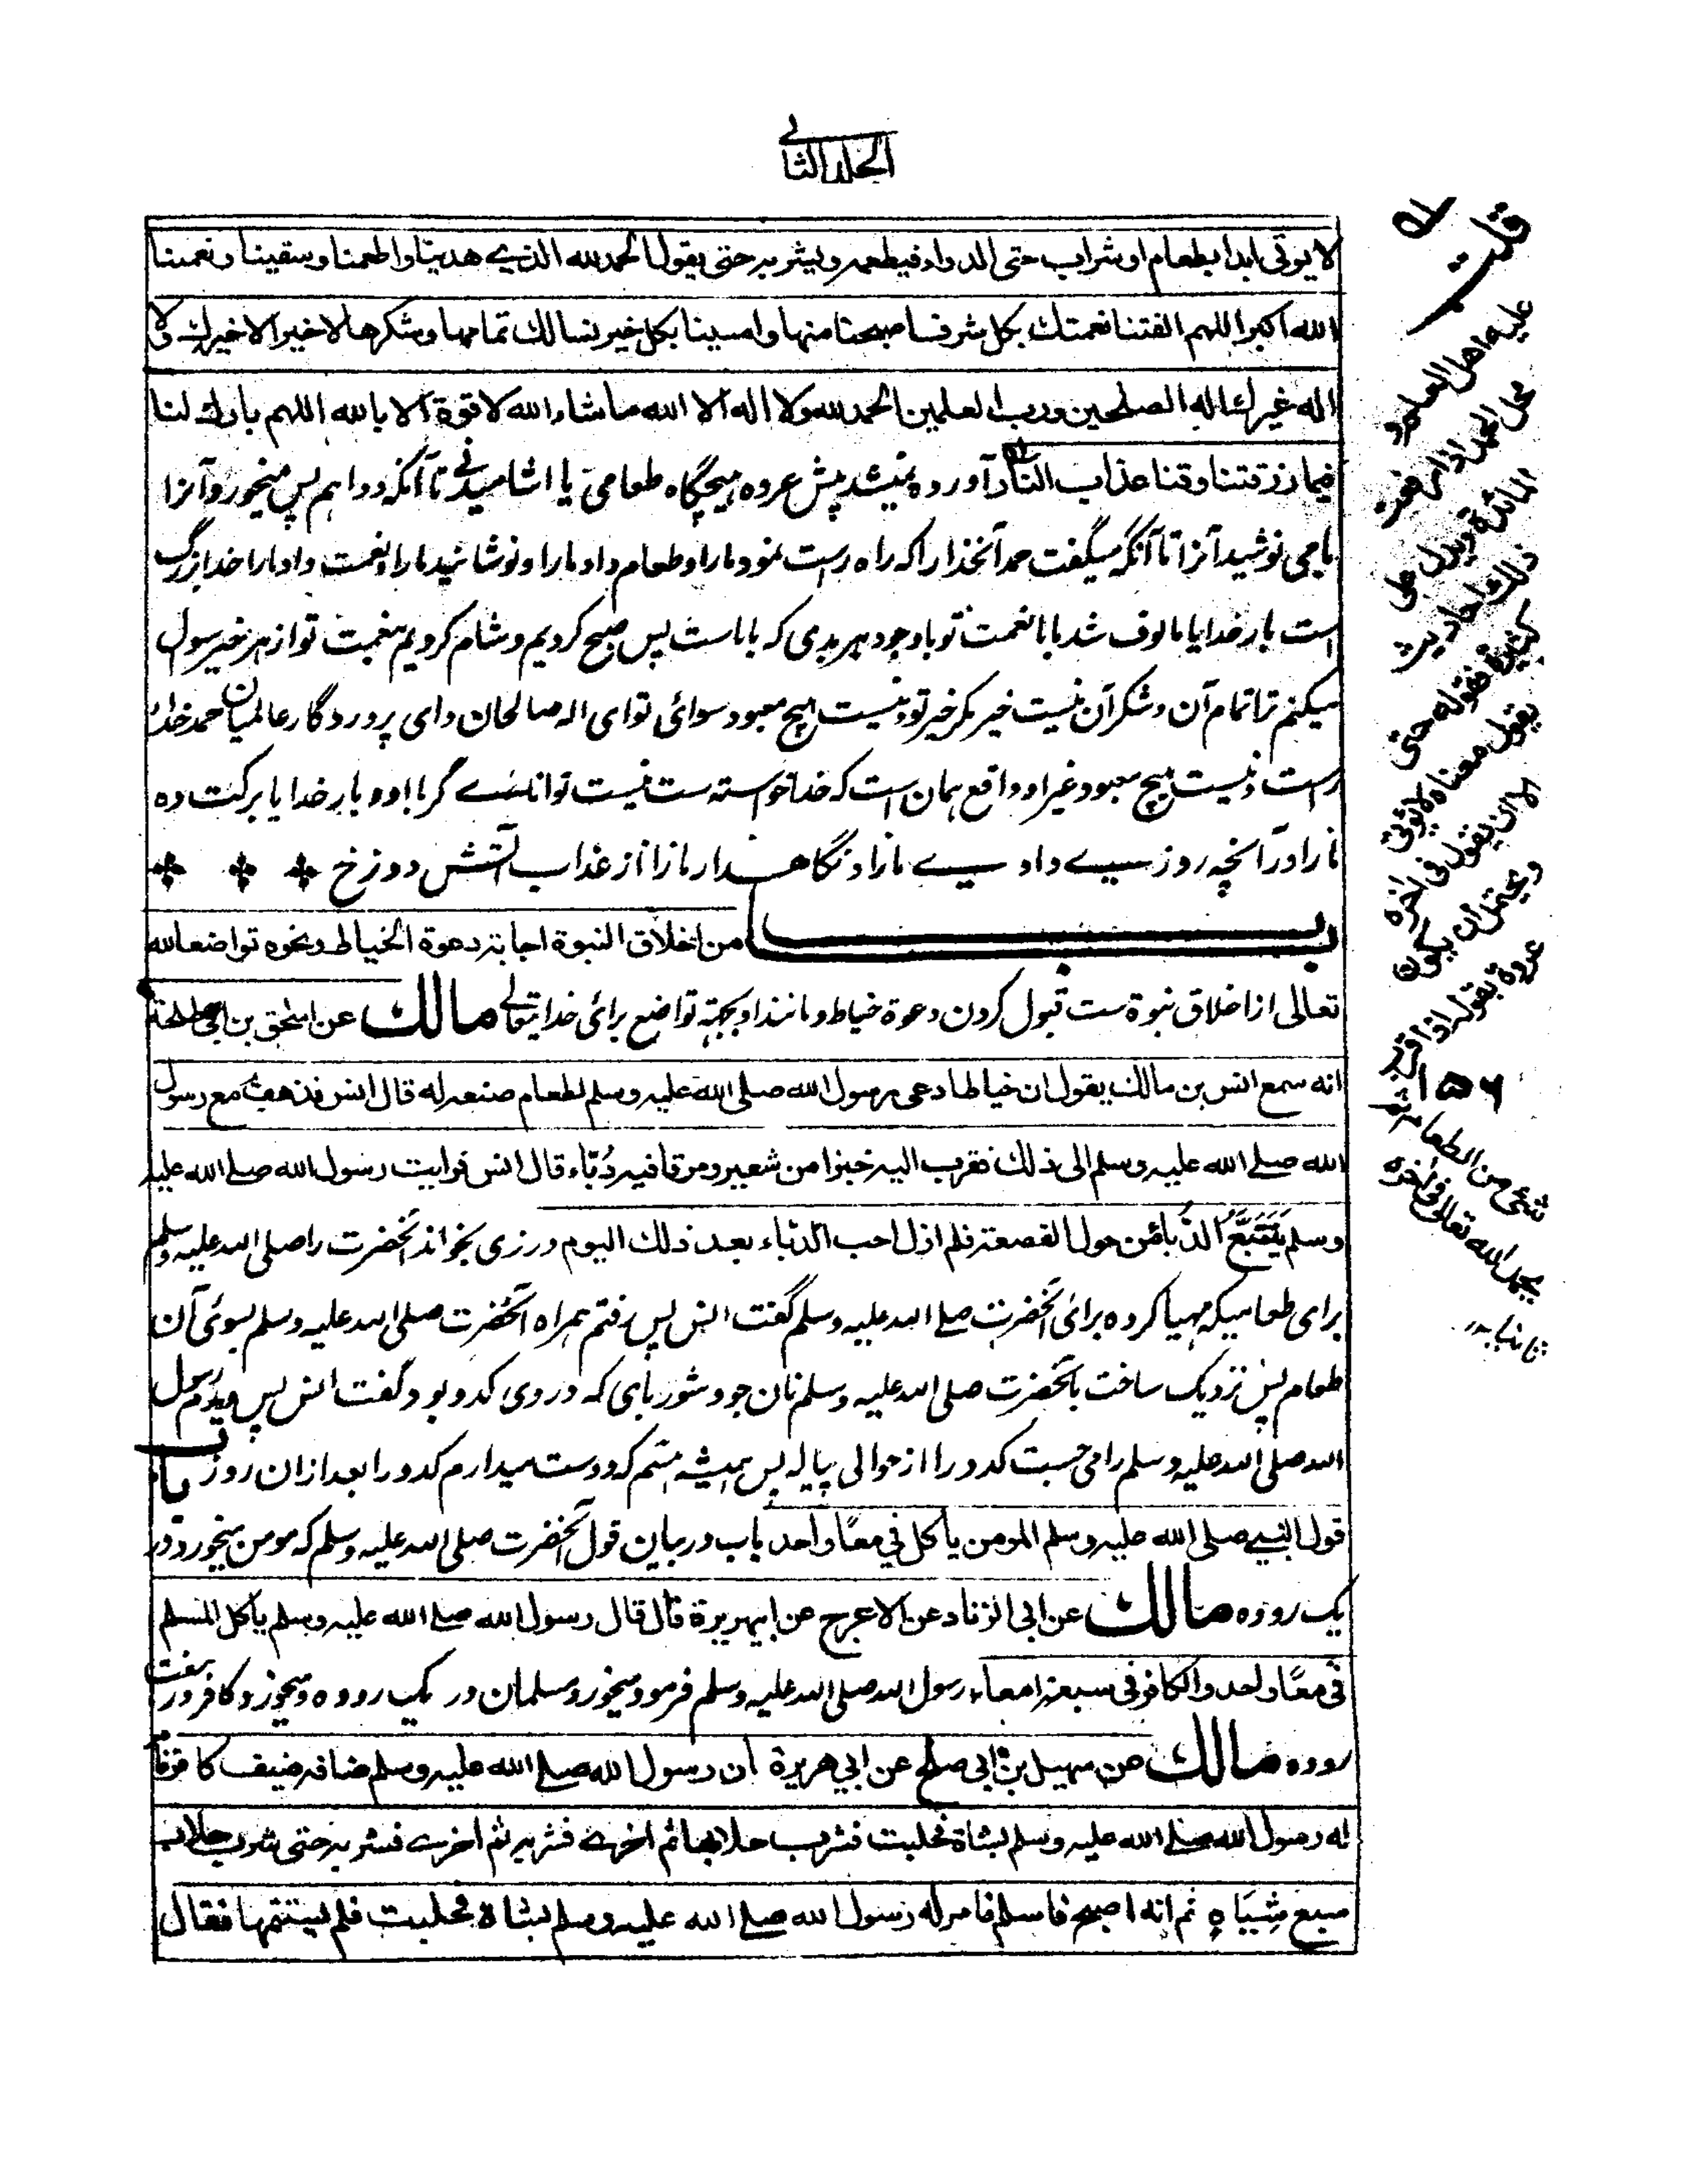 الجلد الثاني
لا يوتى ابدا بطعام او شراب حتى الدواء فيطعمه ويشربه حتى يقول الحمد لله الذي هدينا واطعمنا وسقينا ونعمنا
الله اكبر اللهم الفتنا نعمتك بكل شر فاصبحنا منها وامسينا بكل خير نسالك تمامها وشكرها لا خير الا خيرك ولا
اله غيرك اله الصلحين ورب العلمين الحمد لله ولا اله الا الله ما شاء الله لا قوة الا بالله اللهم بارك لنا
فيما رزقتنا وقنا عذاب النار آورده نمیشد پیش عروه هیچگاه طعامی یا اشامیدنی تا آنکه دوا هم پس میخورد آنرا
یا می نوشید آنرا تا آنکه میگفت حمد آنخدا را که راه راست نمود ما را و طعام داد ما را و نوشانید ما را و نعمت داد ما را خدا بزرگ
است بار خدایا مالوف شد با ما نعمت تو باوجود هر بدی که با ماست پس صبح کردیم و شام کردیم بنعمت تو از هر خیر سول
میکنم ترا تمام آن و شکر آن نیست خیر مگر خیر تو و نیست هیچ معبود سوائی تو ای اله صالحان و ای پروردگار عالمیان حمد خدا
راست و نیست هیچ معبود غیر او واقع همان است که خدا خواسته ست نیست توانائے گر با او بار خدایا برکت ده
ما را در آنچه روزیے دادے ما را و نگاهدار ما را از عذاب آتش دوزخ
باب من اخلاق النبوة اجابة دعوة الخياط ونحوه تواضعا لله
تعالى از اخلاق نبوة ست قبول کردن دعوة خیاط و مانند او بجهته تواضع برای خدایتعالے مالك عن اسحق بن ابي طلحة
انه سمع انس بن مالك يقول ان خياطا دعى رسول الله صلى الله عليه وسلم لطعام صنعه له قال انس فذهبت مع رسول
الله صلے الله عليه وسلم الى ذلك فقرب اليه خبزا من شعير ومرقا فيه دُبّاء قال انس فرايت رسول الله صلے الله عليه
وسلم يَتَتَبَّعُ الدُبّاء من حول القصعة فلم ازل احب الدباء بعد ذلك اليوم درزی بخواند آنحضرت را صلی الله علیه وسلم
برای طعامیکه مهیا کرده برائ آنحضرت صلے الله علیه وسلم گفت انس پس رفتم همراه آنحضرت صلی الله علیه وسلم بسوئی آن
طعام پس نزدیک ساخت بآنحضرت صلی الله علیه وسلم نان جو و شوربای که در وی کدو بود گفت انس پس دیدم رسول
الله صلی الله علیه وسلم را می جست کدو را از حوالی پیاله پس همیشه هستم که دوست میدارم کدو را بعد ازان روز باب
قول النبے صلى الله عليه وسلم المومن ياكل في معًا واحد باب در بیان قول آنحضرت صلی الله علیه وسلم که مومن میخورد در
یک روده مالك عن ابي الزناد عن الاعرج عن ابيهريرة قال قال رسول الله صلے الله عليه وسلم ياكل المسلم
في معًا واحد والكافر في سبعة امعاء رسول الله صلی الله علیه وسلم فرمود میخورد مسلمان در یک روده و میخورد کافر در هفت
روده مالك عن سهيل بن ابي صلح عن ابي هريرة ان رسول الله صلے الله عليه وسلم ضافه ضيف كافر فامر
له رسول الله صلے الله عليه وسلم بشاة فحلبت فشرب حلابها ثم اخرے فشربه ثم اخرے فشربه حتى شرب حلاب
سبع شِيَاهٍ ثم انه اصبح فاسلم فامر له رسول الله صلے الله عليه وسلم بشاة فحلبت فلم يستتمها فقال
له قلت
عليه اهل العلم
محل الحمد اذا فرغ
المائدة ويدل على
ذلك احاديث
كثيرة فقوله حتى
يقول معناه لا يوتى
الا ان يقول في اخره
ويحتمل ان يكون
عروة يقوله اذا قرب
١٥٦
شئ من الطعام ثم
يحمد الله تعالى في اخره